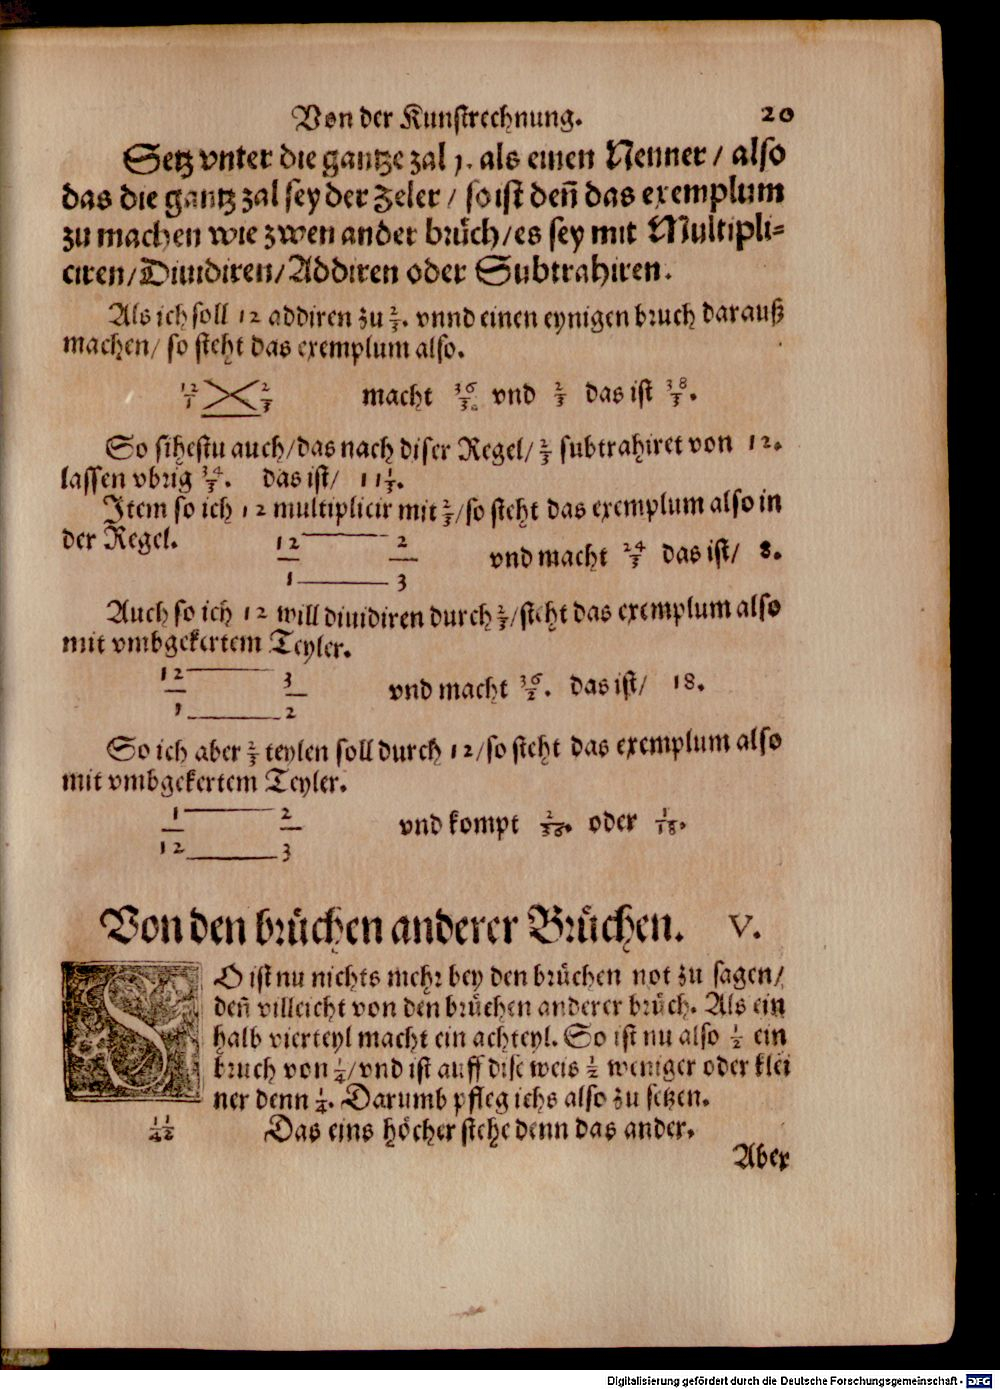 Von der Kunstrechnung. 20
Setz vnter die gantze zal 1. als einen Nenner / also
das die gantz zal sey der Zeler / so ist deñ das exemplum
zu machen wie zwen ander brüch/es sey mit Multipli-
ciren/Diuidiren/Addiren oder Subtrahiren.
Als ich soll 12 addiren zu 2/3. vnnd einen eynigen bruch darauß
machen/ so steht das exemplum also.
12/1 2/3 macht 36/3. vnd 2/3 das ist 38/3.
So sihestu auch/das nach diser Regel/ 2/3 subtrahiret von 12.
lassen vbrig 34/3. das ist/ 11 1/3.
Item so ich 12 multiplicir mit 2/3/so steht das exemplum also in
der Regel. 12/1 2/3 vnd macht 24/3 das ist/ 8.
Auch so ich 12 will diuidiren durch 2/3/steht das exemplum also
mit vmbgekertem Teyler.
12/1 3/2 vnd macht 36/2. das ist/ 18.
So ich aber 2/3 teylen soll durch 12/so steht das exemplum also
mit vmbgekertem Teyler.
1/12 2/3 vnd kompt 2/36. oder 1/18.
Von den brüchen anderer Brüchen. V.
SO ist nu nichts mehr bey den brüchen not zu sagen/
deñ villeicht von den brüchen anderer brüch. Als ein
halb vierteyl macht ein achteyl. So ist nu also 1/2 ein
bruch von 1/4/vnd ist auff dise weis 1/2 weniger oder klei
ner denn 1/4. Darumb pfleg ichs also zu setzen.
1/4 1/2 Das eins höcher stehe denn das ander.
Aber
Digitalisierung gefördert durch die Deutsche Forschungsgemeinschaft - DFG